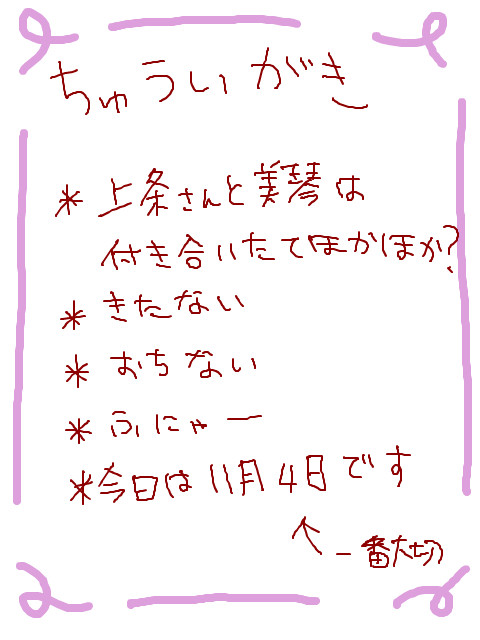 ちゅういがき
* 上条さんと美琴は
付き合いたてほかほか?
* きたない
* おちない
* ふにゃー
* 今日は11月4日です
↑ 一番大切